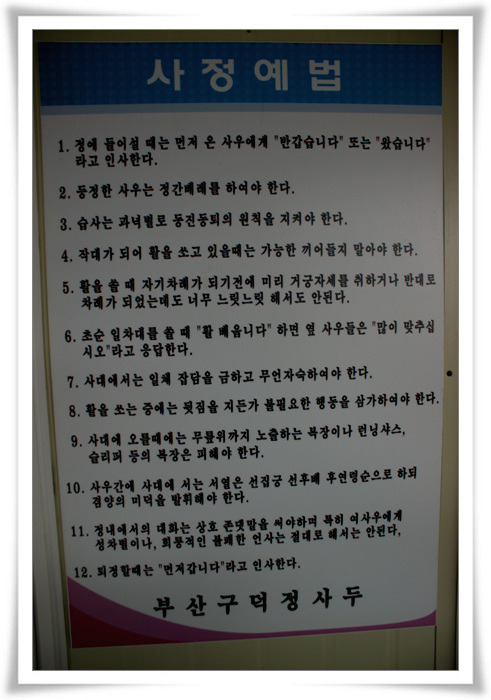 사정예법
1. 정에 들어설 때는 먼저 온 사우에게 "반갑습니다" 또는 "왔습니다"
라고 인사한다.
2. 등정한 사우는 정간배례를 하여야 한다.
3. 습사는 과녁별로 동진동퇴의 원칙을 지켜야 한다.
4. 작대가 되어 활을 쏘고 있을때는 가능한 끼어들지 말아야 한다.
5. 활을 쏠 때 자기차례가 되기전에 미리 거궁자세를 취하거나 반대로
차례가 되었는데도 너무 느릿느릿 해서도 안된다.
6. 초순 일차대를 쏠 때 "활 배웁니다" 하면 옆 사우들은 "많이 맞추십
시오"라고 응답한다.
7. 사대에서는 일체 잡담을 금하고 무언자숙하여야 한다.
8. 활을 쏘는 중에는 뒷짐을 지든가 불필요한 행동을 삼가하여야 한다.
9. 사대에 오를때에는 무릎위까지 노출하는 복장이나 런닝샤스,
슬리퍼 등의 복장은 피해야 한다.
10. 사우간에 사대에 서는 서열은 선집궁 선후배 후연령순으로 하되
겸양의 미덕을 발휘해야 한다.
11. 정내에서의 대화는 상호 존댓말을 써야하며 특히 여사우에게
성차별이나, 희롱적인 불쾌한 언사는 절대로 해서는 안된다,
12. 퇴정할때는 "먼저갑니다"라고 인사한다.
부산구덕정사두